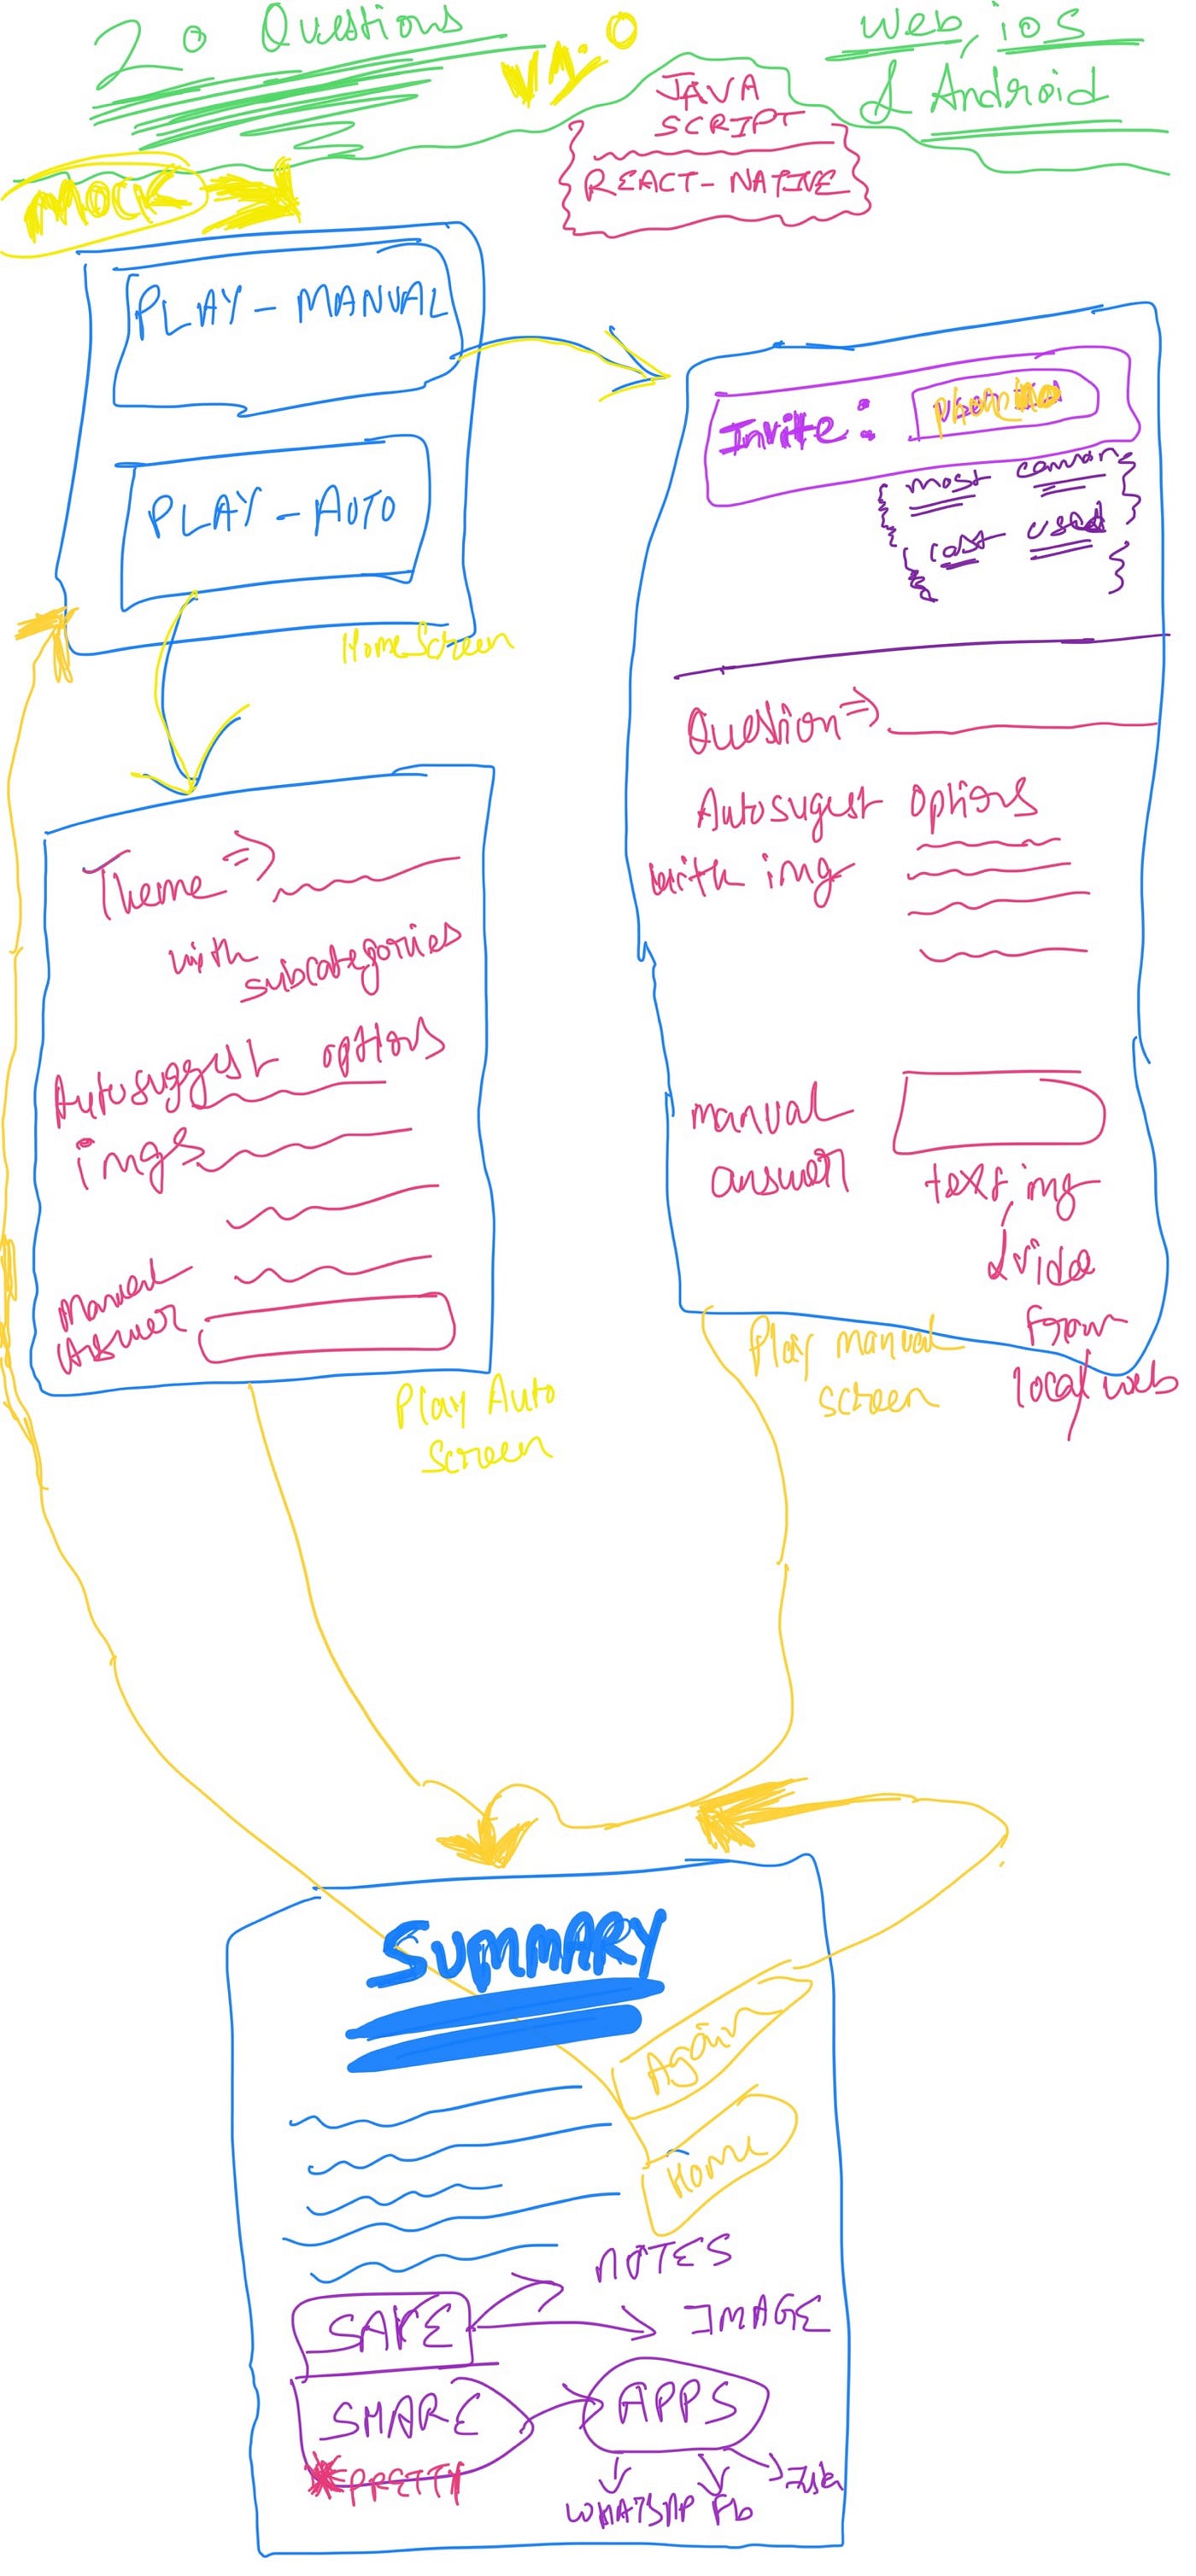 20 Questions
V1.0
Web, ios
& Android
JAVA
SCRIPT
REACT-NATIVE
MOCK
PLAY - MANUAL
PLAY - AUTO
HomeScreen
Invite:
most common
last used
Question =>
Autosugest options
with img
manual
answer
text, img
& video
from
local/web
Play manual
screen
Theme =>
with
subcategories
Autosuggest options
imgs
Manual
Answer
Play Auto
Screen
SUMMARY
Again
Home
NOTES
SAVE
IMAGE
SHARE
APPS
PRETTY
WHATSAP Fb